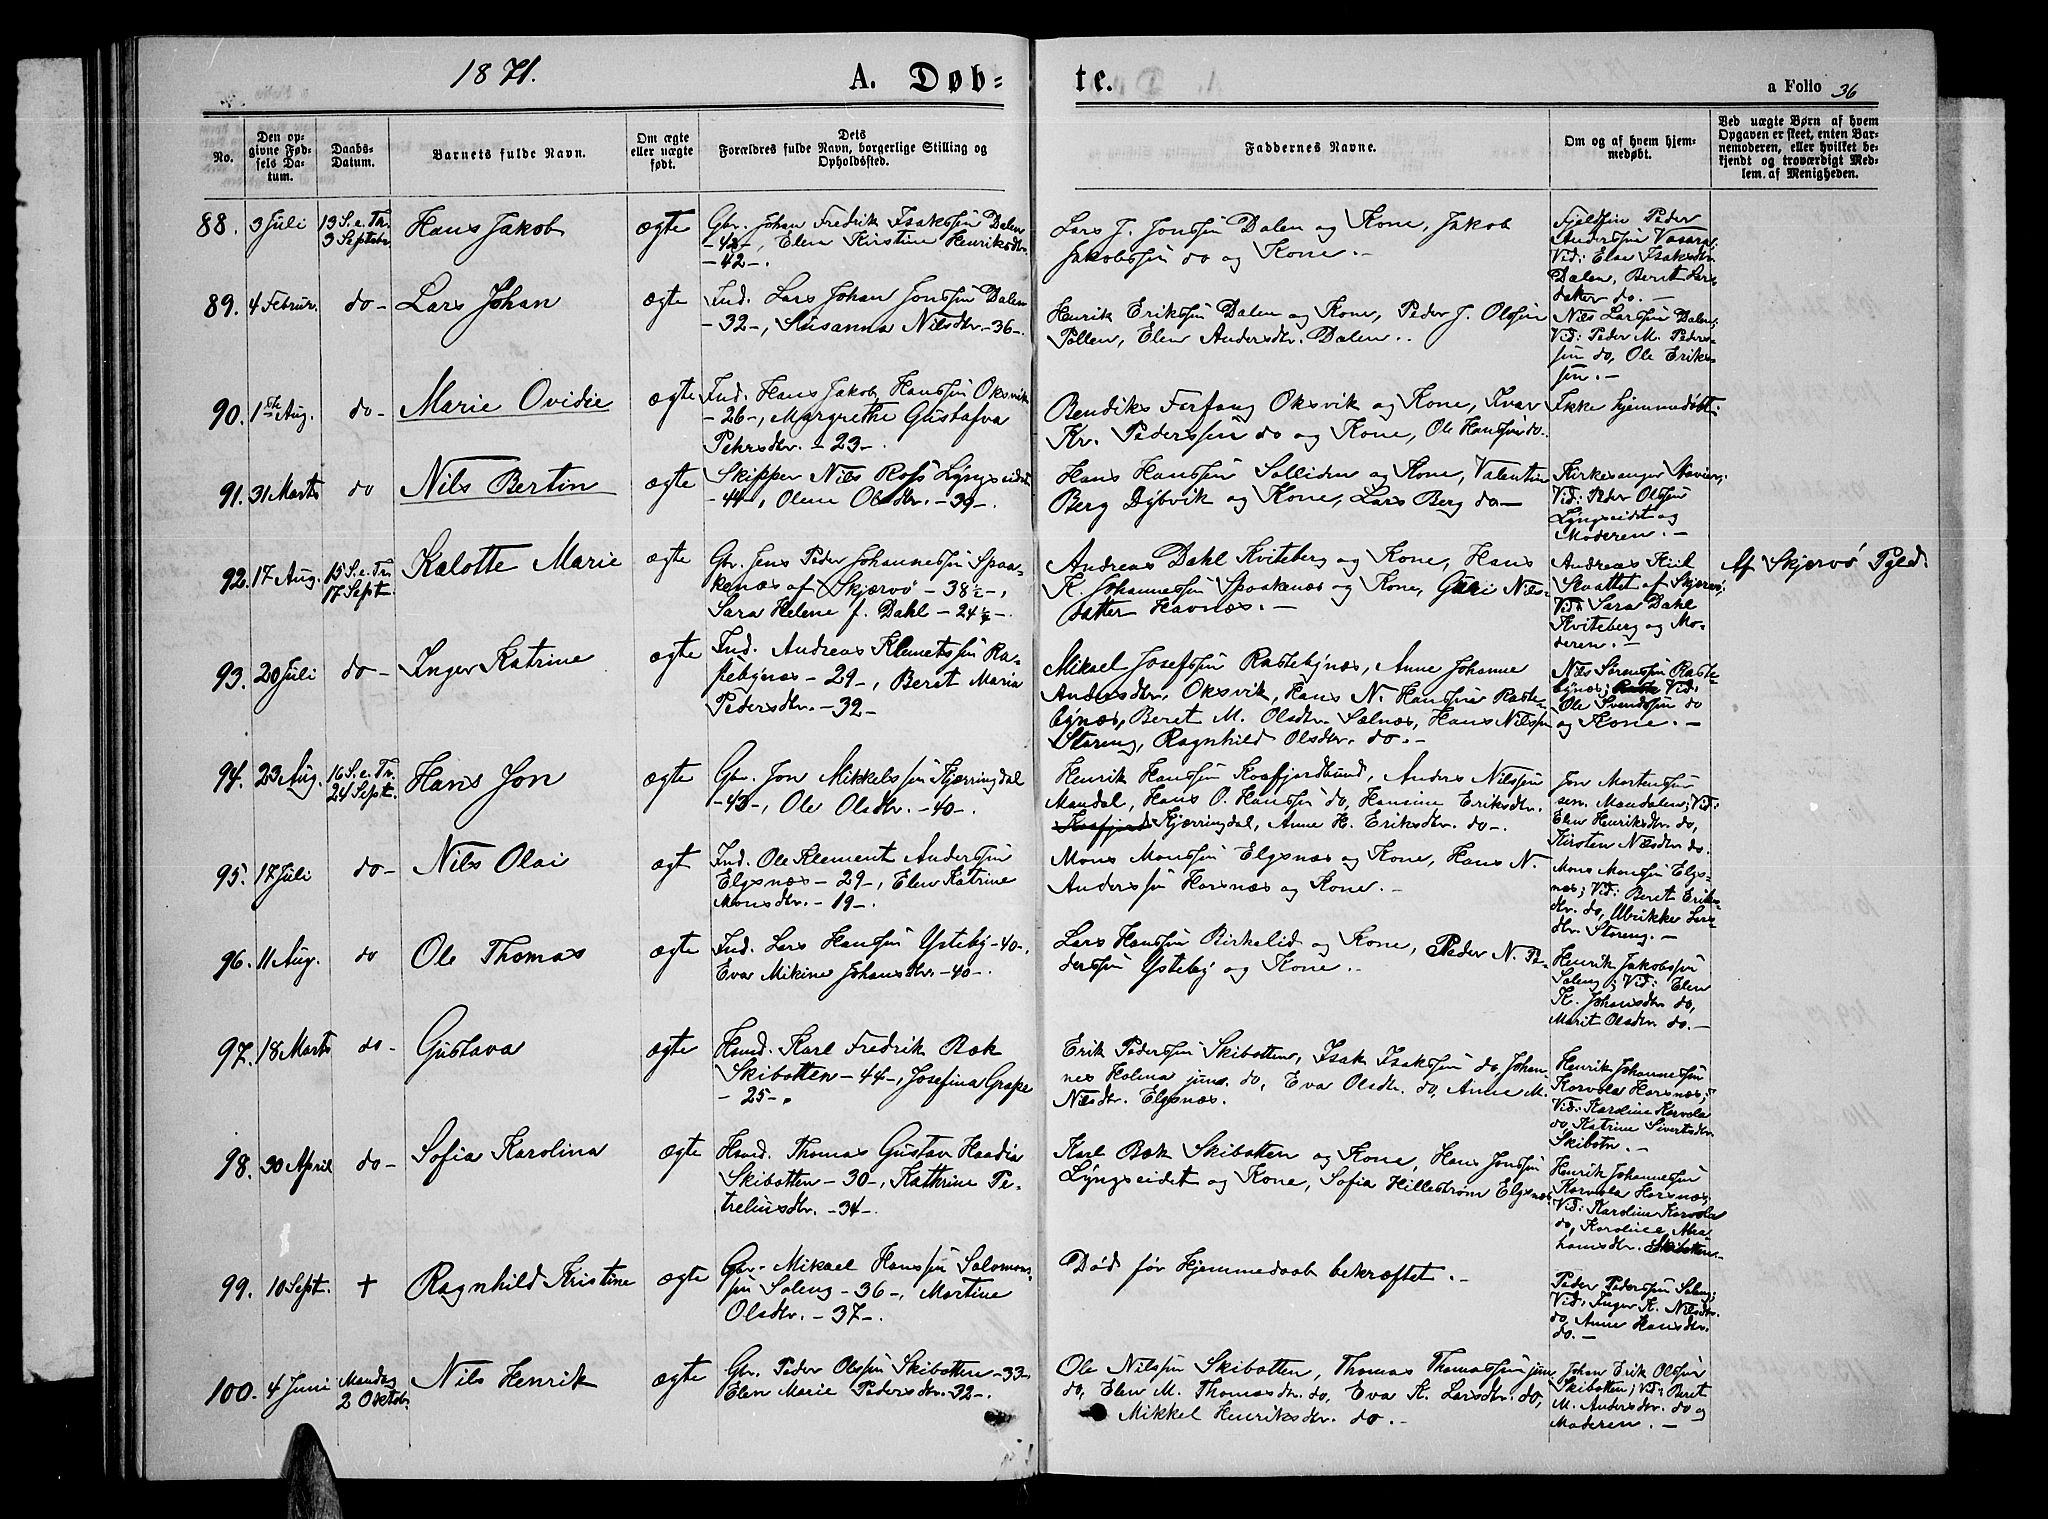 1871.
A. Døb=
te.
a Folio 36
No.
Den op-
givne Fød-
sels Da-
tum.
Daabs-
Datum.
Barnets fulde Navn.
Om ægte
eller uægte
født.
Dets
Forældres fulde Navn, borgerlige Stilling og
Opholdssted.
Faddernes Navne.
Om og af hvem hjem-
medøbt.
Ved uægte Børn af hvem
Opgaven er skeet, enten Bar-
nemoderen, eller hvilket be-
kjendt og troværdigt Med-
lem af Menigheden.
88. 3 Juli
13 S. e. Tr.
3 Septebr
Hans Jakob
ægte
Gbr. Johan Fredrik Isakssøn Dalen
-42-, Elen Kirstine Henriksdtr.
-42-.
Lars J. Jonssøn Dalen og Kone, Jakob
Jakobssøn do og Kone.-
Fjeldfin Peder
Anderssøn Vasara;
Vid: Elen Isaksdtr.
Dalen, Berit Lars-
datter do.-
89. 4 Februr.
do-
Lars Johan
ægte
Ind. Lars Johan Jonssøn Dalen
-32-, Susanna Nilsdtr.-36-.
Henrik Erikssøn Dalen og Kone, Peder J. Olssøn
Pollen, Elen Andersdtr. Dalen..
Nils Larssøn Dalen;
Vid: Peder M. Peders-
søn do, Ole Eriks-
søn.-
90. 1ste Aug.
do-
Marie Ovidie
ægte
Ind. Hans Jakob Hanssøn Oksvik
-26-, Margrethe Gustafva
Pehrsdtr. -23-.
Bendiks Forfang Oksvik og Kone, Ivar
Kr. Pederssøn do og Kone, Ole Hanssøn do.
Ikke hjemmedøbt.
91. 31 Marts
do
Nils Bertin
ægte
Skipper Nils Ross Lyngseidet
-44-, Oline Olsdtr. -39-.
Hans Hanssøn Solliden og Kone, Valentin
Berg Dybvik og Kone, Lars Berg do-
Kirkesanger
Vid: Peder Olssøn
Lyngseidet og
Moderen.-
92. 17 Aug.
15 S. e. Tr.
17 Sept.
Kalotte Marie
ægte
Gbr. Jens Peder Johannessøn Spaa-
kenæs af Skjærvø -38½-,
Sara Helene f. Dahl -24½-.
Andreas Dahl Kviteberg og Kone, Hans
K. Johannessøn Spaakenæs og Kone, Guri Nils-
datter Havnæs.-
Andreas Kiil
Skattet af Skjervø;
Vid: Sara Dahl
Kviteberg og Mo-
deren.-
Af Skjervø Pgld.
93. 20 Juli
do-
Inger Katrine
ægte
Ind. Andreas Klemetssøn Ra-
stebynæs -29-, Beret Maria
Pedersdtr. -32-
Mikael Josefssøn Rastebynæs, Anne Johanne
Andersdtr. Oksvik, Hans N. Hanssøn Raste-
bynæs, Beret M. Olsdtr. Sælnæs, Hans Nilssøn
Storeng, Ragnhild Olsdtr. do.-
Nils Sørenssøn Raste-
bynæs; Vid:
Ole Svendssøn do
og Kone.-
94. 23 Aug.
16 S. e. Tr.
24 Sept.
Hans Jon
ægte
Gbr. Jon Mikkelssøn Kjærringdal
-43-, Ole Olsdtr. -40-.
Henrik Hanssøn Kaafjordbund, Anders Nilssøn
Mandal, Hans O. Hanssøn do, Hansine Eriksdtr.
Kaafjord Kjærringdal, Anne H. Eriksdtr. do-.
Jon Mortenssøn
sen. Mandalen; Vid:
Elen Henriksdtr. do,
Kirsten Nilsdtr. do.
95. 17 Juli
do-
Nils Olai
ægte
Ind. Ole Klement Anderssøn
Elgsnæs -29-, Elen Katrine
Monsdtr. -19-.
Mons Monssøn Elgsnæs og Kone, Hans N.
Anderssøn Horsnæs og Kone.-
Mons Monssøn Elgs-
næs; Vid: Beret Eriks-
dtr. do, Ulrikke Lars-
dtr. Storeng.-
96. 11 Aug.
do
Ole Thomas
ægte
Ind. Lars Hanssøn Ysteby -40-,
Eva Mikine Johansdtr. -40-.
Lars Hanssøn Birkelid og Kone, Peder N. Pe-
derssøn Ysteby og Kone.-
Henrik Jakobssøn
Soleng; Vid: Elen
K. Johansdtr. do,
Marit Olsdtr. do.-
97. 18 Marts
do-
Gustava
ægte
Hmd. Karl Fredrik Bæk
Skibotten -44-, Josefina Grape
-25-.
Erik Pederssøn Skibotten, Isak Isakssøn do, Johan-
nes Holma jun. do, Eva Olsdtr. do, Anne M.
Nilsdtr. Elgsnæs.
Henrik Johannessøn
Korvola Horsnæs;
Vid: Karoline Korvola
do, Katrine Sivertsdtr.
Skibotn.-
98. 30 April
do-
Sofia Karolina
ægte
Hmd. Thomas Gustav Haadia
Skibotten -30-, Kathrine Pe-
treliusdtr. -34-.
Karl Bæk Skibotten og Kone, Hans Jonssøn
Lyngseidet og Kone, Sofia Hillestrøm Elgsnæs.
Henrik Johannessøn
Korvola Horsnæs;
Vid: Karoline Korvola
do, Karoline Abra-
hamsdtr. Skibotten.-
99. 10 Sept.
+
Ragnhild Kristine
ægte
Gbr. Mikael Hanssøn Salomons-
søn Soleng -36-, Martine
Olsdtr. -37-.
Død før Hjemmedaab bekræftet.-
Peder Pederssøn Soleng;
Vid: Inger K. Nilsdtr.
do, Anne Hansdtr.
do.-
100. 4 Juni
Mandag
2 Oktobr.
Nils Henrik
ægte
Gbr. Peder Olssøn Skibotten -33-
Elen Marie Pedersdtr. -32-.
Ole Nilssøn Skibotten, Thomas Thomassøn jun
do, Elen M. Thomasdtr. do, Eva K. Larsdtr. do,
Mikkel Henriksdtr. do.-
Johan Erik Olssøn
Skibotten; Vid: Beret
M. Andersdtr. do og
Moderen.-